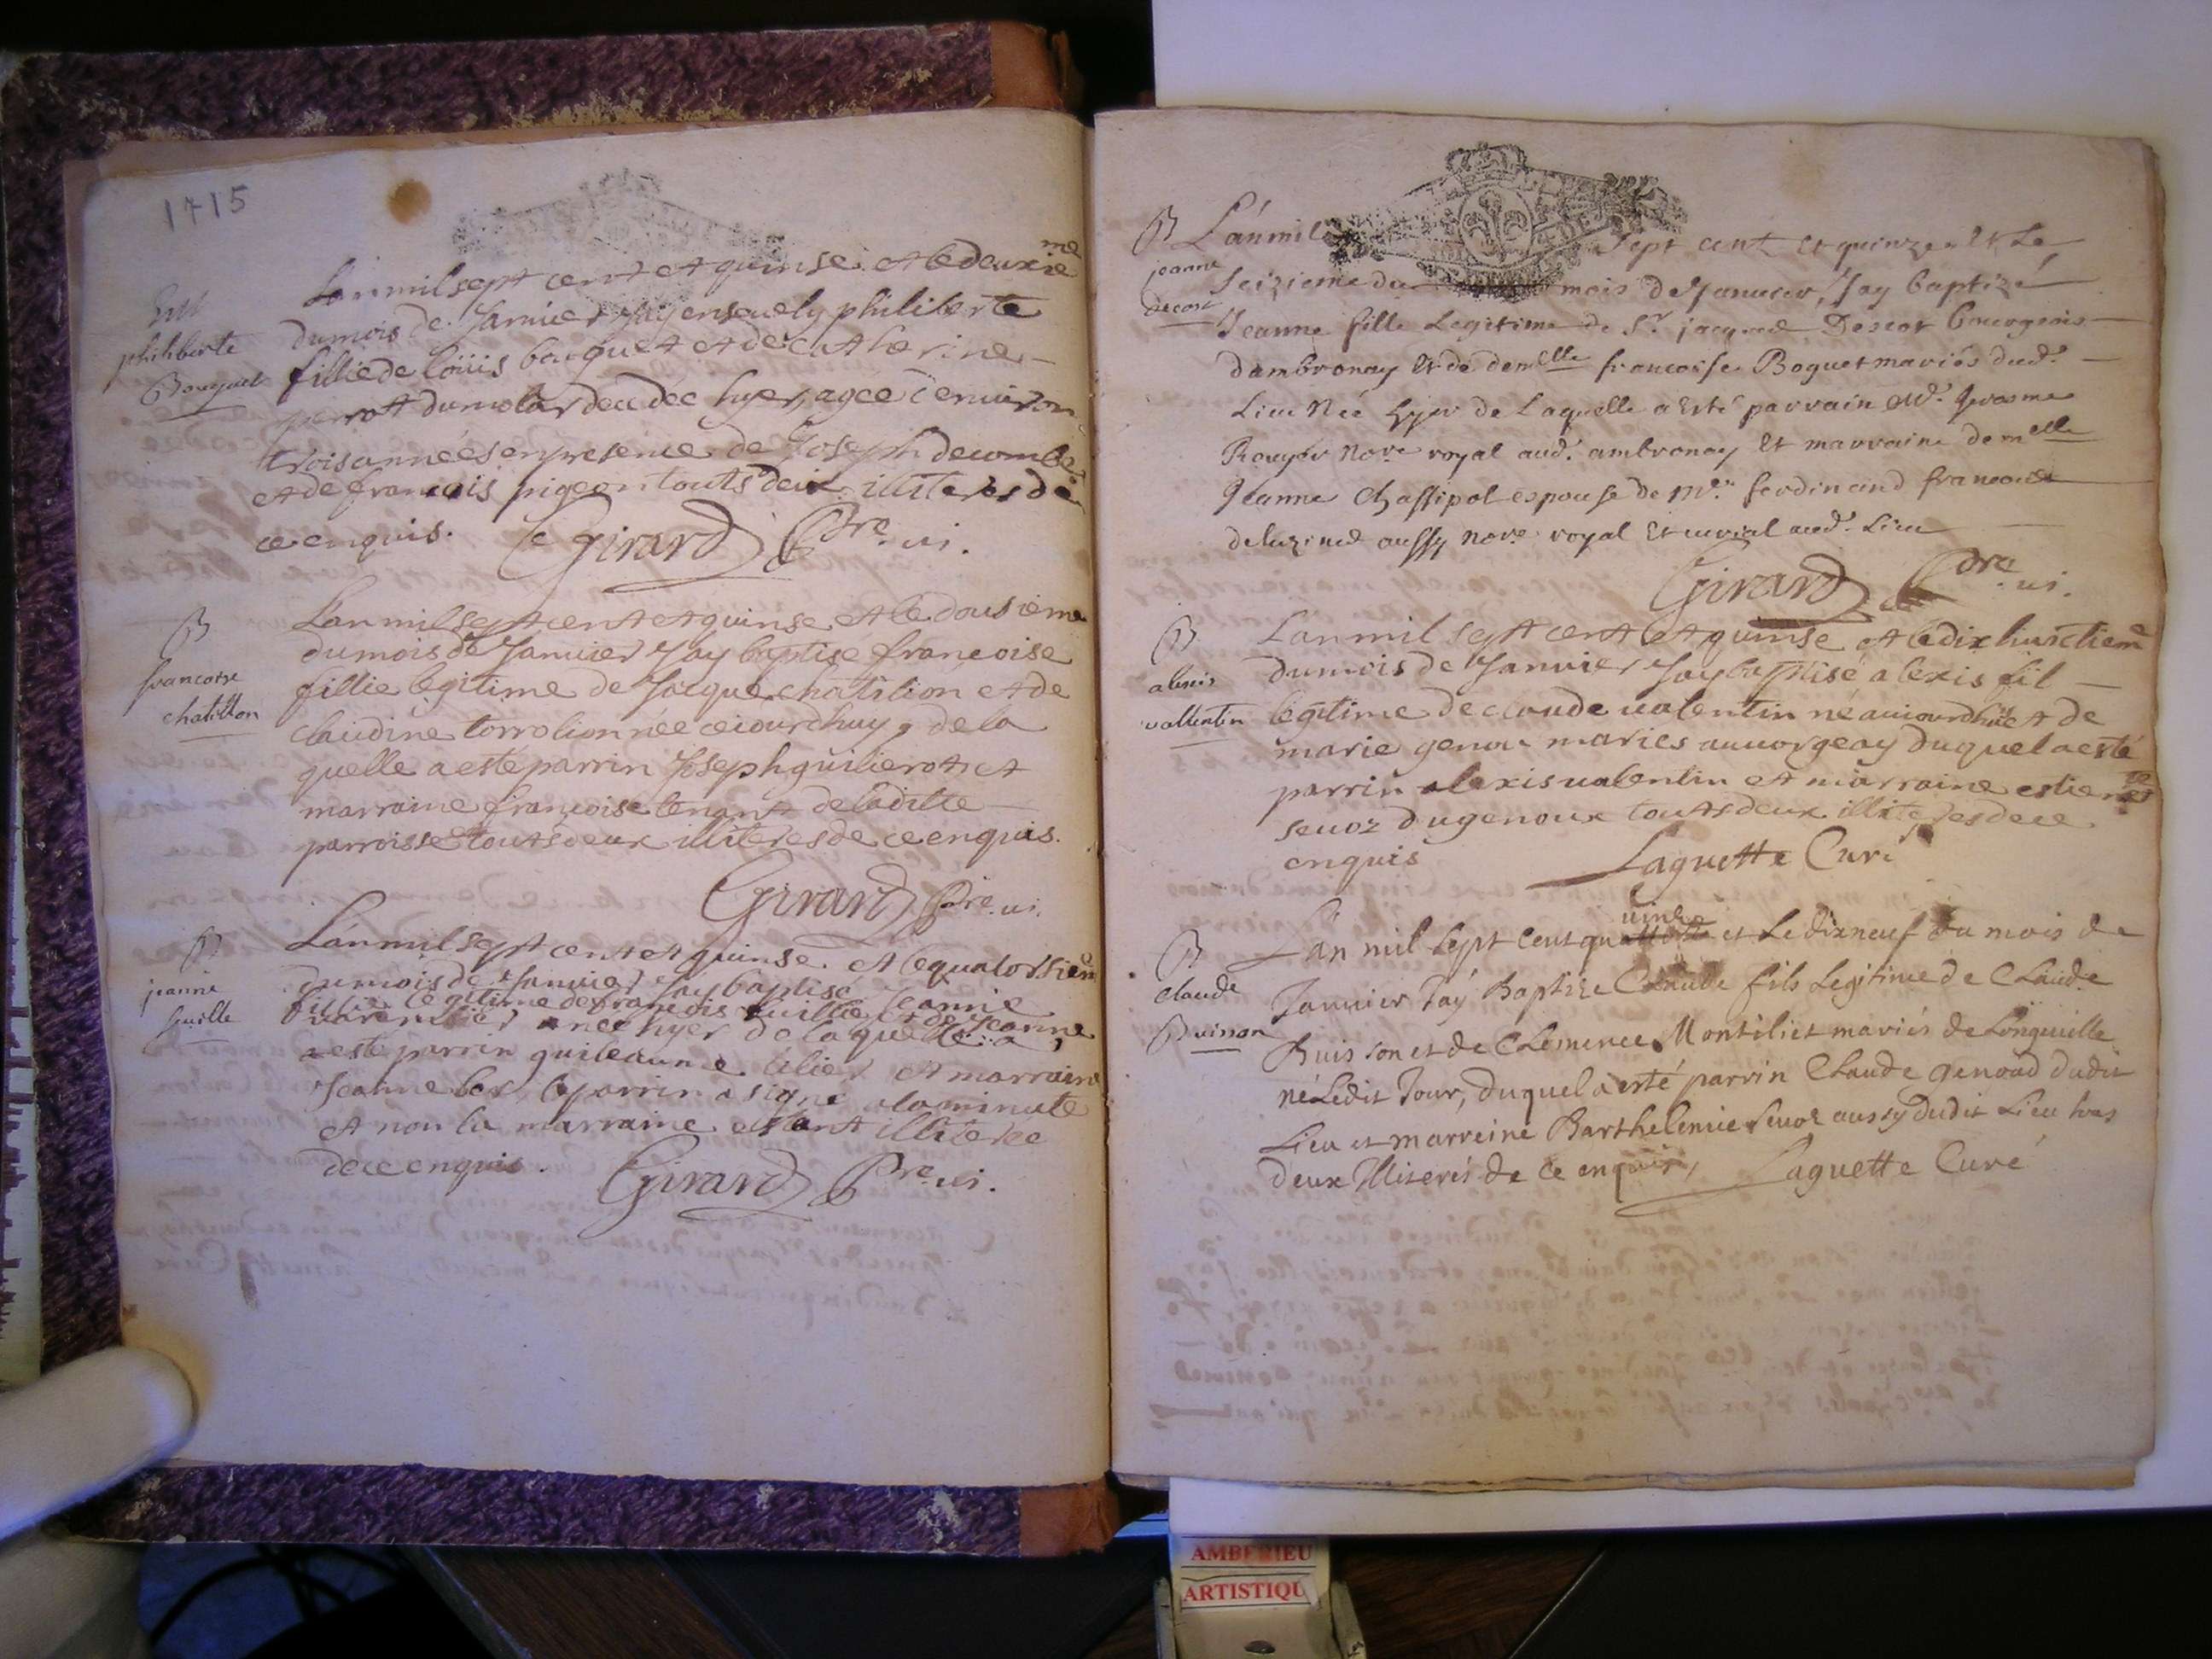 1715
Ent
philiberte
Bouquet
Lan mil sept cent et quinse et le deuxieme
du mois de Janvier Jay ensevely philiberte
fillie de loüis bouquet et de catherine
perrot du molar decedée hyer, agée denviron
trois années en presence de Joseph decombe
et de francois pigeon touts deux illiteres de
ce enquis. Girard Ptre. vi.
B
francoise
chatillon
Lan mil sept cent et quinse et le dousieme
du mois de Janvier Jay baptisé francoise
fillie legitime de Jacque chatilion et de
claudine torrolion née ceiourdhuy, de la
quelle a esté parrin Joseph guilierot et
marraine francoise tenant de la ditte
parroisse touts deux illiteres de ce enquis.
Girard Ptre. vi.
B
jeanne
fuille
Lan mil sept cent et quinse et le quatorsiem
du mois de Janvier Jay baptisé Jeanne
fillie legitime de francois fuillie et de Jeanne
varembier née hyer de laquelle a
esté parrin guileaume tilier et marraine
Jeanne bor, le parrin a signé a la minute
et non la marraine estant illiterée
de ce enquis. Girard Ptre. vi.
B
jeanne
descot
L'an mil sept cent et quinze et Le
Seizieme du mois de Januier, Jay baptizé
Jeanne fille Legitime de Sr. jacques Descot bourgeois
dambronay et de demelle francoise Boguet mariés dud.
Lieu Née hyer de Laquelle a esté parrain Md. Jerosme
Rouyer Nore royal aud. ambronay et marraine demelle
Jeanne Chassipol espouse de Me. ferdinand francois
deluzines aussy nore. royal et curial aud. Lieu
Girard Ptre. vi.
B
alexis
vallentin
Lan mil sept cent et quinse et le dix huictieme
du mois de Janvier Jay baptisé alexis fil
legitime de claude valentin né auiourdhuy et de
marie genou maries au vorgeay duquel a esté
parrin alexis valentin et marraine estienette
sevoz du genoux touts deux illiteres de ce
enquis Laguette Curé
B
claude
Buisson
L'an mil sept cent quinze et Le dixneuf du mois de
Janvier Jaÿ Baptize Claude fils Legitime de Claude
Buisson et de Clemence Montiliet mariés de Longeville
né Ledit Jour, duquel a esté parrin Claude genoud dudit
Lieu et marreine Barthelemie Sevoz aussy dudit Lieu tous
deux Illiterés de ce enquis, Laguette Curé
AMBERIEU
ARTISTIQU